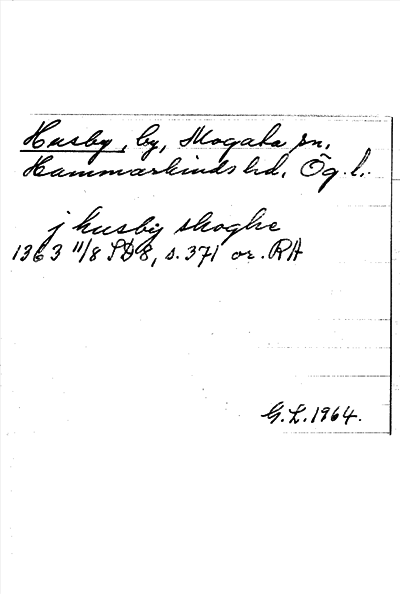 Husby, by, Mogata sn,
Hammarkinds hd, Ög. l.
j husby skoghe
1363 11/8 SD 8, s. 371 or. RA
G. L. 1964.